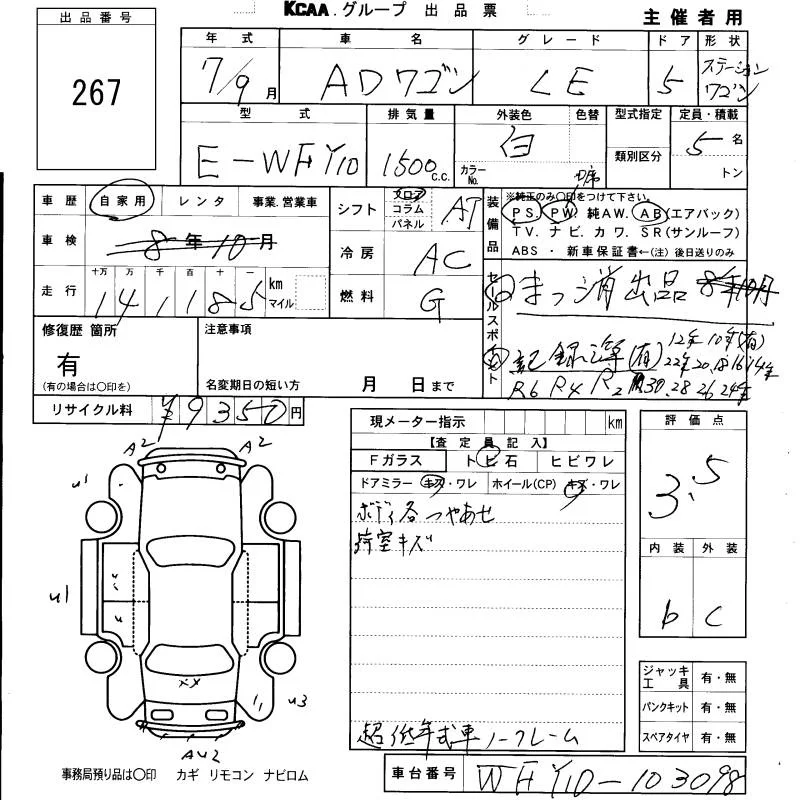 KCAA.グループ 出品票
主催者用
出品番号
267
年式 車名 グレード ドア 形状
7/9月 ADワゴン LE 5 ステーションワゴン
型式 排気量 外装色 色替 型式指定 定員・積載
E-WFY10 1500c.c. 白 カラーNo. 類別区分 5名
トン
車歴 自家用 レンタ 事業.営業車
シフト フロア コラム パネル AT
装備品
※純正のみ〇印をつけて下さい。
PS. PW. 純AW. AB(エアバック)
TV. ナビ. カワ. SR(サンルーフ)
ABS ・ 新車保証書←(注)後日送りのみ
車検 8年10月
冷房 AC
走行 十万 万 千 百 十 一
141185 km マイル
燃料 G
セールスポイント
まっ消出品 8年10月
記録簿(有) 12年10年(有)
22年20.18.16.14年
R6 R4 R2 30.28 26 24年
修復歴 箇所
有
(有の場合は〇印を)
注意事項
名変期日の短い方 月 日まで
リサイクル料 ¥9350円
現メーター指示 km
【査定員記入】
Fガラス トビ石 ヒビワレ
ドアミラー キズ・ワレ ホイール(CP) キズ・ワレ
ボディ各つやあせ
荷室キズ
超低年式車ノークレーム
評価点
3.5
内装 外装
b c
ジャッキ工具 有・無
パンクキット 有・無
スペアタイヤ 有・無
A2 A2
U1
U1
U
XX
U3
AU2
事務局預り品は〇印 カギ リモコン ナビロム
車台番号 WFY10-103098